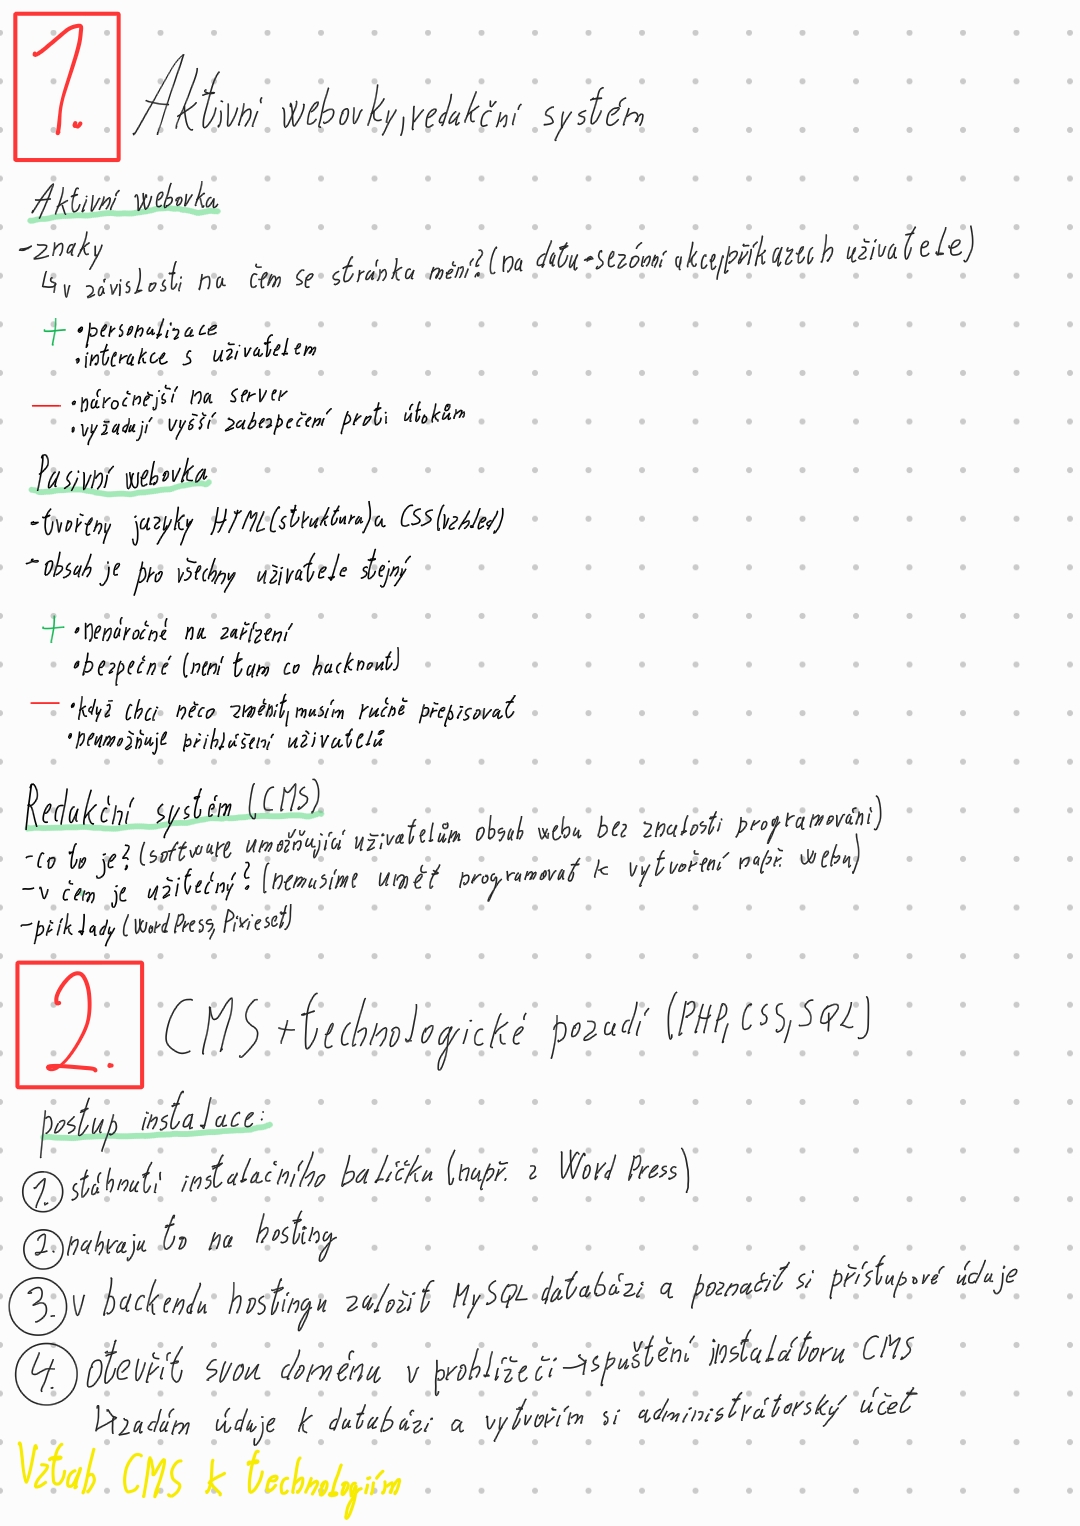 1.
Aktivní webovky, redakční systém
Aktivní webovka
- znaky
↳ v závislosti na čem se stránka mění? (na datu - sezónní akce, příkazech uživatele)
+ • personalizace
• interakce s uživatelem
— • náročnější na server
• vyžadují vyšší zabezpečení proti útokům
Pasivní webovka
- tvořeny jazyky HTML (struktura) a CSS (vzhled)
- obsah je pro všechny uživatele stejný
+ • nenáročné na zařízení
• bezpečné (není tam co hacknout)
— • když chci něco změnit, musím ručně přepisovat
• neumožňuje přihlášení uživatelů
Redakční systém (CMS)
- co to je? (software umožňující uživatelům obsah webu bez znalosti programování)
- v čem je užitečný? (nemusíme umět programovat k vytvoření např. webu)
- příklady (WordPress, Pixieset)
2.
CMS + technologické pozadí (PHP, CSS, SQL)
postup instalace:
1. stáhnutí instalačního balíčku (např. z Word Press)
2. nahraju to na hosting
3. v backendu hostingu založit MySQL databázi a poznačit si přístupové údaje
4. otevřít svou doménu v prohlížeči → spuštění instalátoru CMS
↳ zadám údaje k databázi a vytvořím si administrátorský účet
Vztah CMS k technologiím